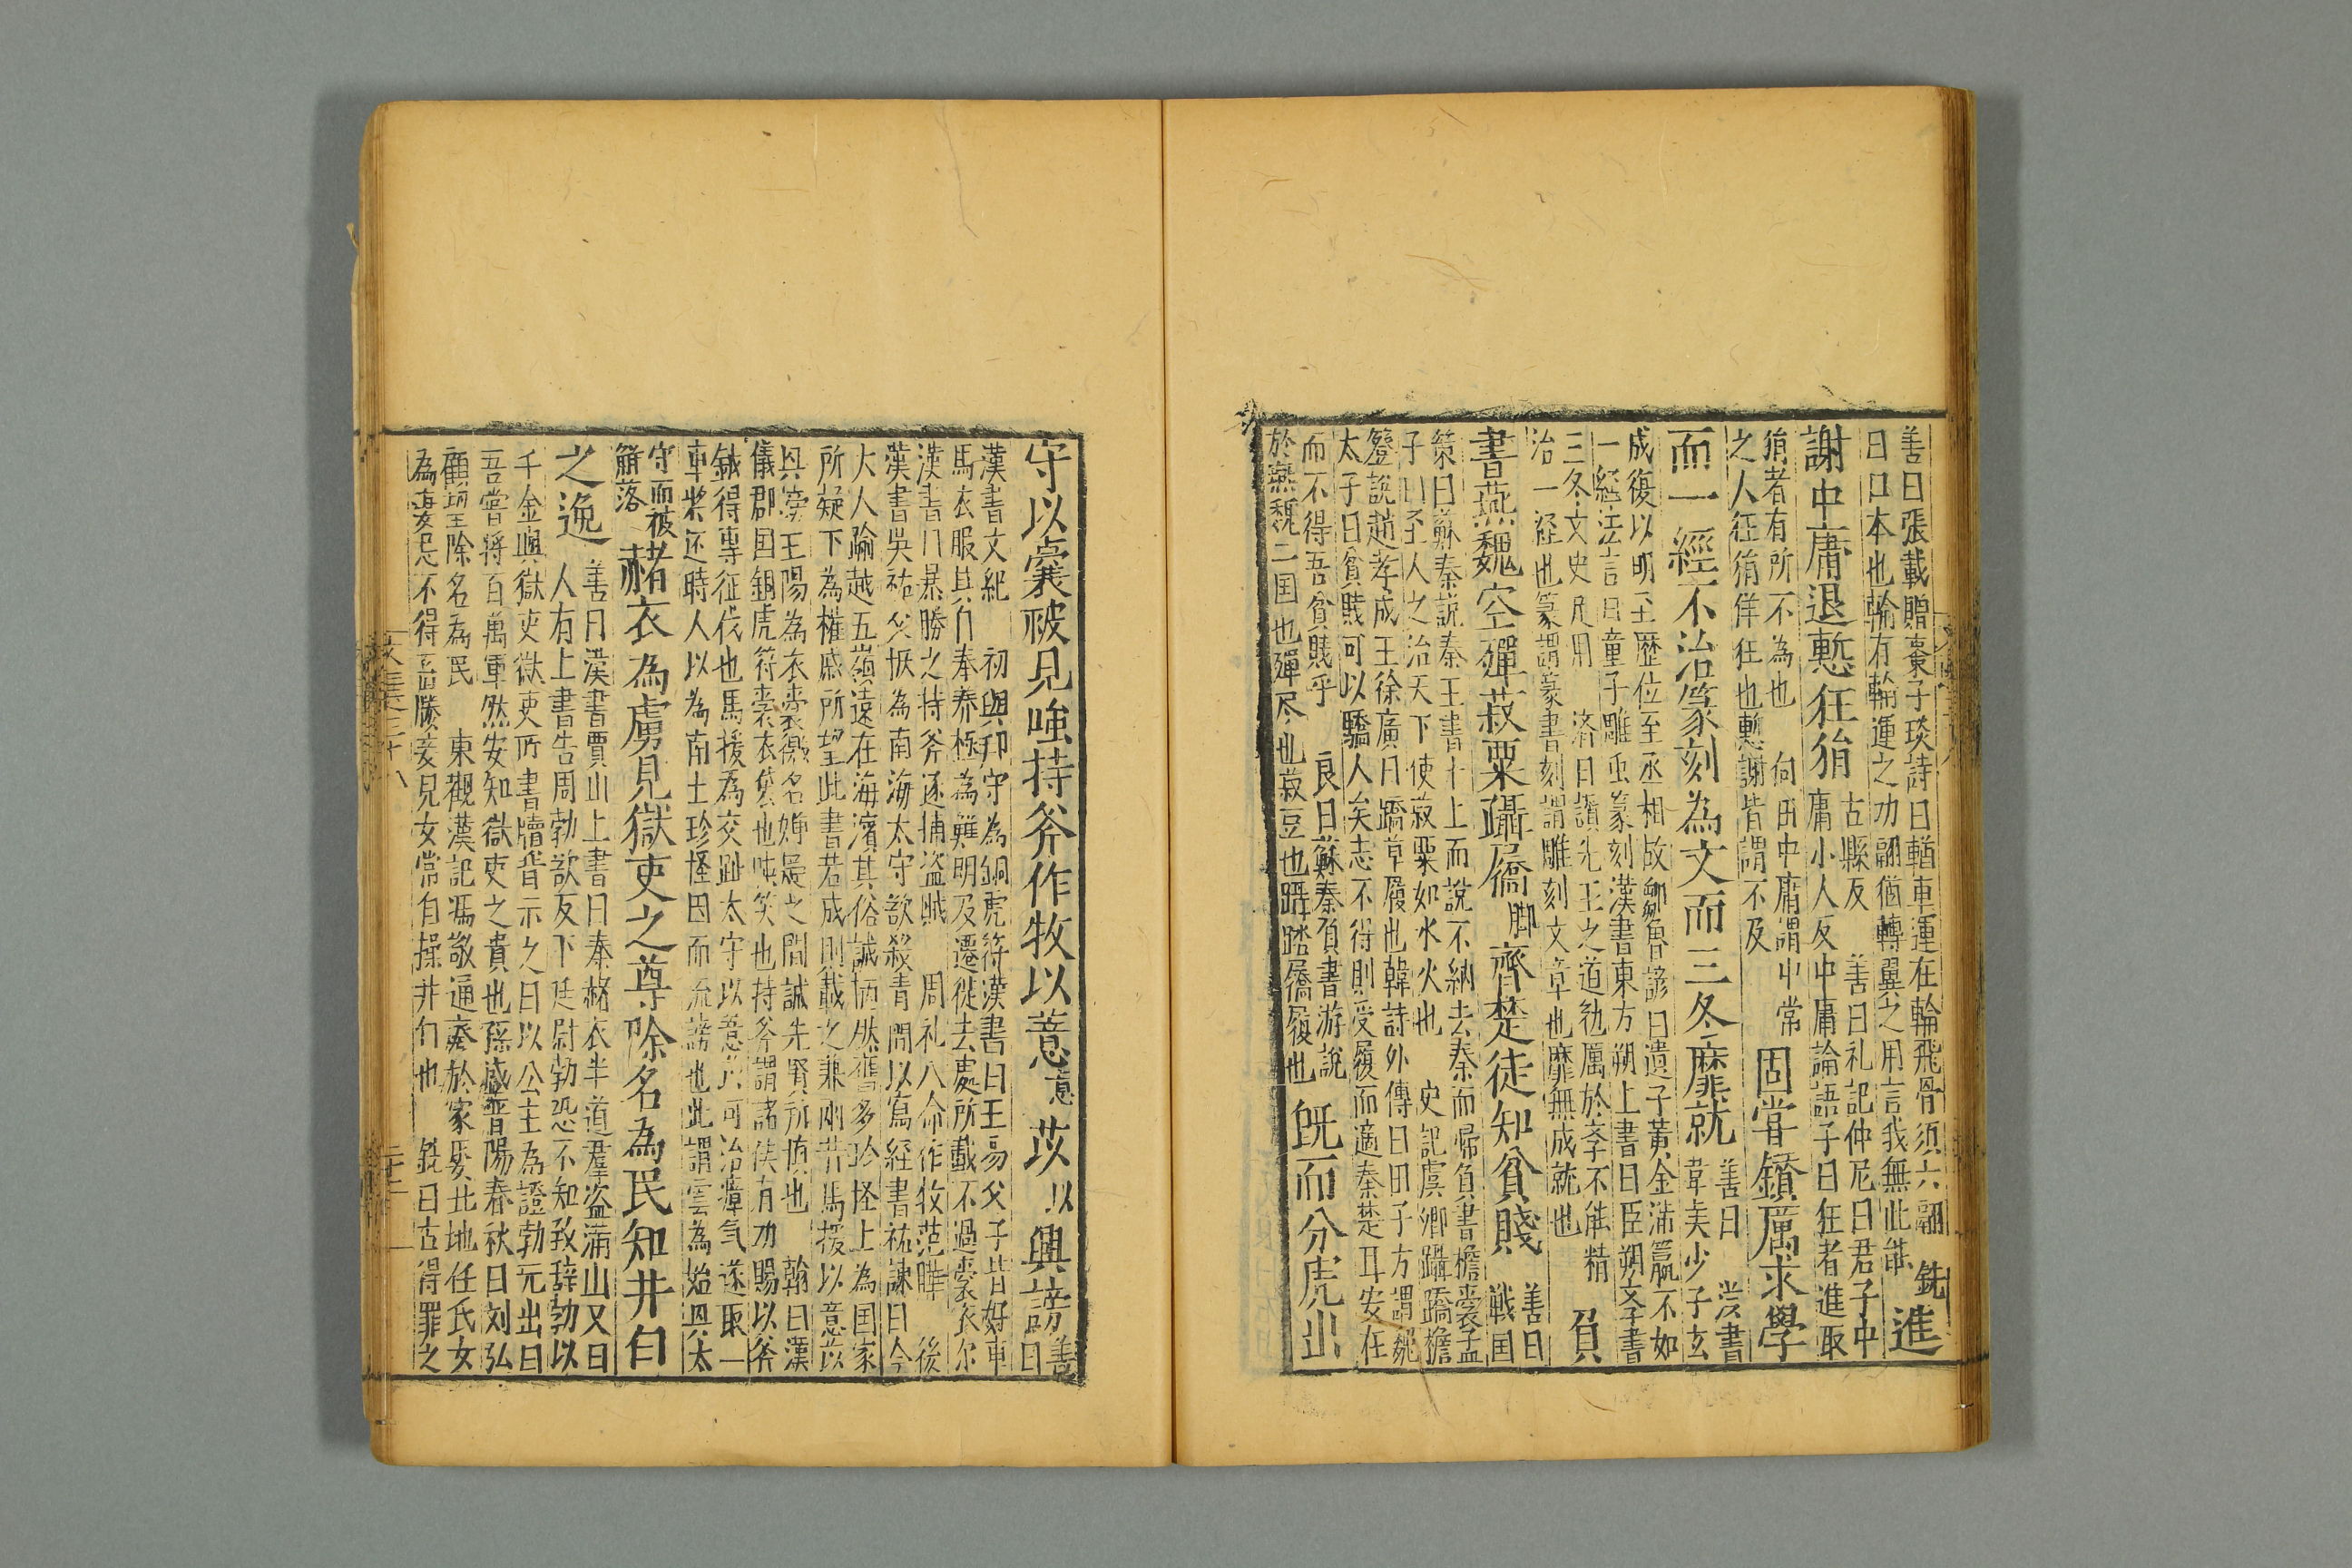 善曰張載贈棗子琰詩曰輶車運在輪飛骨須六翮 銑
曰口本也輪有輪運之功翮猶轉翼之用言我無此能
進
謝中庸退慙狂狷
古縣反 善曰礼記仲尼曰君子中
庸小人反中庸論語子曰狂者進取
狷者有所不為也 向曰中庸謂中常
之人狂狷佯狂也慙謝皆謂不及
固甞鑚厲求學
而一經不治篆刻為文而三冬靡就
善曰 漢書
韋玄少子玄
成復以明至歷位至丞相故鄒魯諺曰遺子黃金滿籯不如
一經法言曰童子雕虫篆刻漢書東方朔上書曰臣朔文孝書
三冬文史足用 濟曰讚先王之道勉厲於孝不能精
治一経也篆謂篆書刻謂雕刻文章也靡無成就也
負
書燕魏空殫菽粟躡屩脚齊楚徒知貧賤
善曰
戦国
策曰蘇秦說秦王書十上而說不納去秦而帰負書檐囊孟
子曰至人之治天下使菽粟如水火也 史記虞卿躡蹻檐
簦說趙孝成王徐廣曰蹻草履也韓詩外傳曰田子方謂魏
太子曰貧賤可以驕人矣志不得則受履而適秦楚耳安在
而不得吾貧賤乎 良曰蘇秦負書游說
於燕魏二国也殫尽也菽豆也躡踏屩履也
旣而分虎出
守以囊被見嗤持斧作牧以薏意苡以興謗
善
曰
漢書文紀 初與郡守為銅虎符漢書曰王昜父子皆好車
馬衣服其自奉養極為鮮明及遷徙去處所載不過囊衣尔
漢書曰暴勝之持斧逐捕盗賊 周礼八命作牧范曄 後
漢書吳祐父恢為南海太守欲殺青簡以寫經書祐諫曰今
大人踰越五嶺遠在海濱其俗誠陋然舊多珍怪上為国家
所疑下為權戚所望此書若成則載之兼兩昔馬援以意苡
興謗王陽為衣囊徼名嫌疑之間誠先賢所慎也 翰曰漢
儀郡国銅虎符囊衣袋也嗤笑也持斧謂諸侯有功賜以斧
鉞得專征伐也馬援為交趾太守以薏苡可治瘴气遂取一
車米还時人以為南土珍怪因而流謗也此謂雲為始興太
守而被
觧落
赭衣為虜見獄吏之尊除名為民知井臼
之逸
善曰漢書賈山上書曰秦赭衣半道羣盗滿山又曰
人有上書告周勃欲反下廷尉勃恐不知致辞勃以
千金與獄吏獄吏所書牘背示之曰以公主為證勃元出曰
吾嘗将百萬軍然安知獄吏之貴也孫盛晉陽春秋曰刘弘
顧望除名為民 東觀漢記馮敬通癈於家娶北地任氏女
為妻忌不得畜媵妾兒女常自操井臼也 銑曰古得罪之